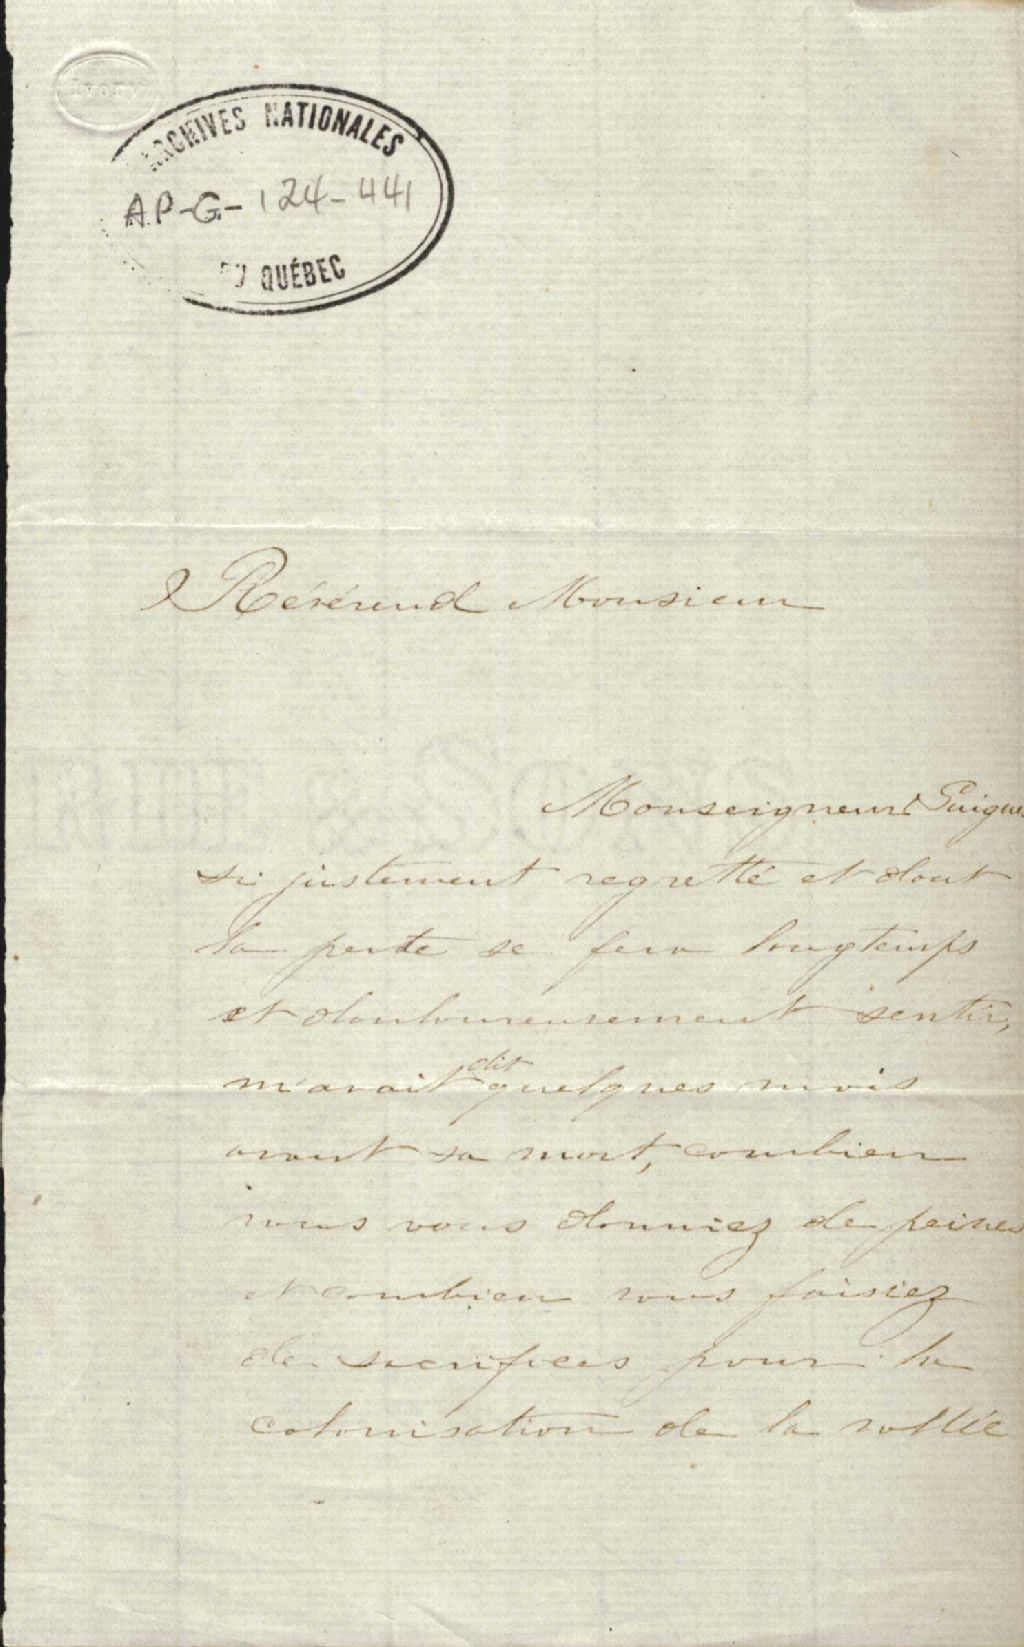 Ivory
ARCHIVES NATIONALES
AP-G-124-441
DU QUÉBEC
Révérend Monsieur
Monseigneur Guigues
si justement regretté et dont
la perte se fera longtemps
et douloureusement sentir,
m'avait dit quelques mois
avant sa mort, combien
vous vous donniez de peines
et combien vous faisiez
de sacrifices pour la
colonisation de la vallée